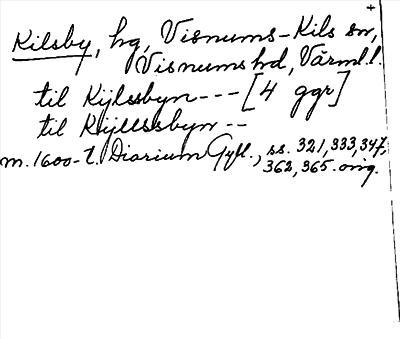 Kilsby, hg, Visnums-Kils sn,
Visnums hd, Värml. l.
til Kijlssbyn --- [4 ggr]
til Kijllssbyn --
m. 1600-t. Diarium Gyll., ss. 321, 333, 347,
362, 365. orig.